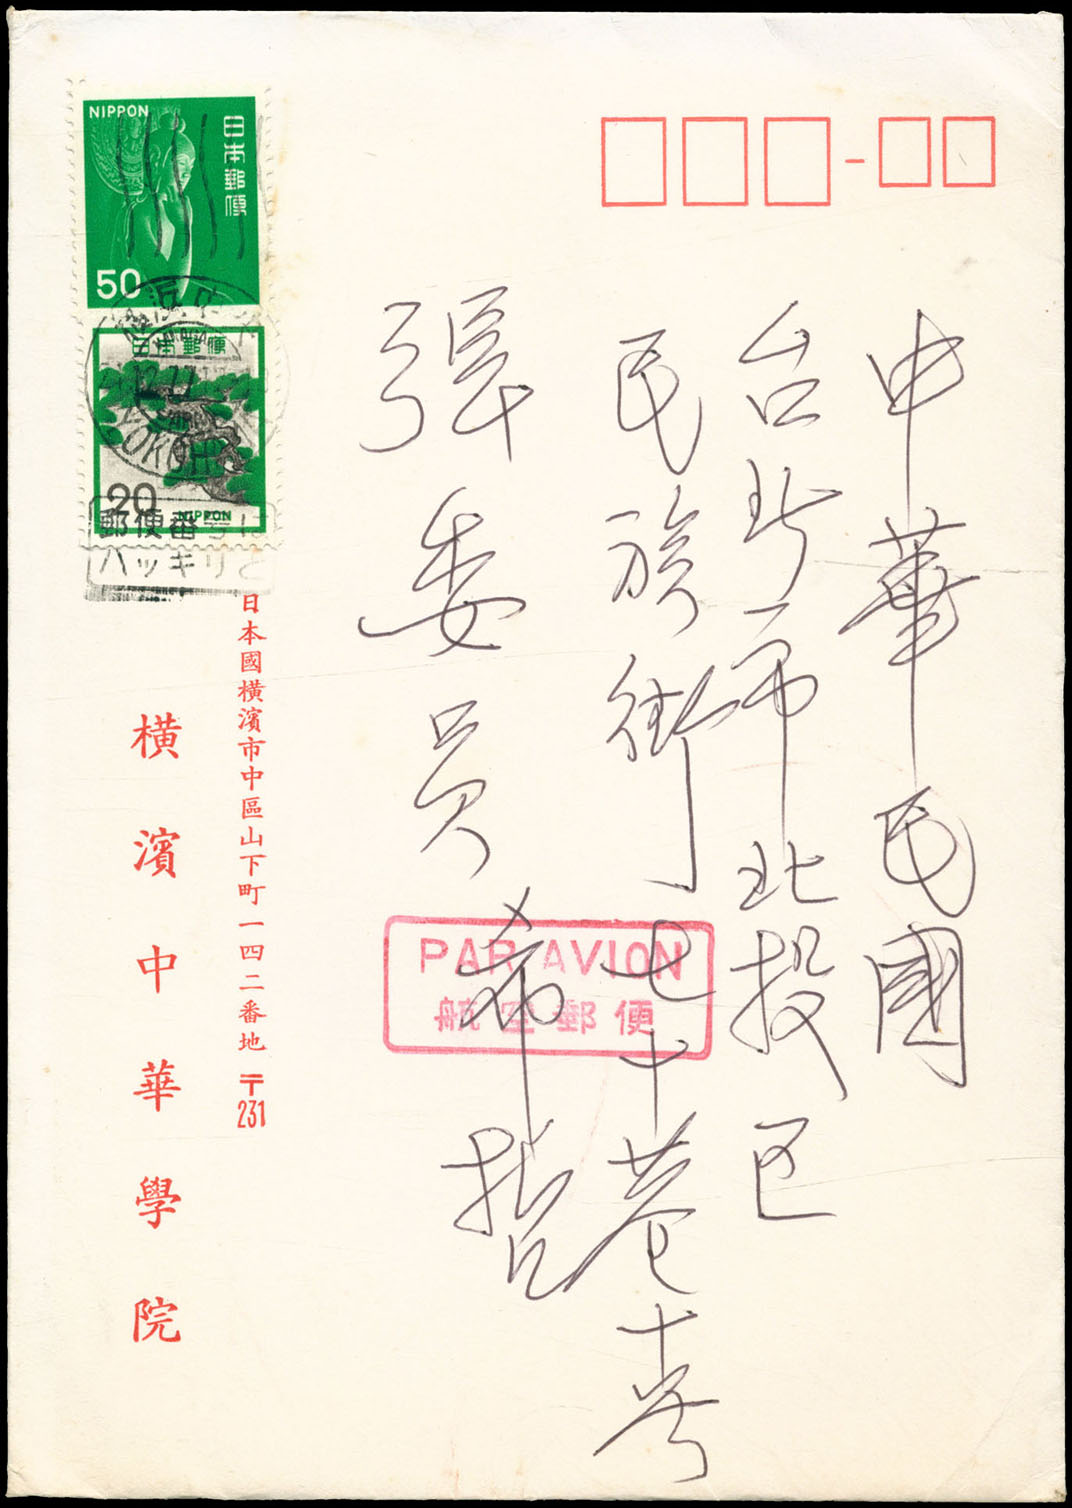 NIPPON
日本郵便
50
日本郵便
20
NIPPON
郵便番号は
ハッキリと
中華民國
台北市北投区
民族街七十巷十号
張委員
希哲
PAR AVION
航空郵便
日本國横濱市中區山下町一四二番地 〒231
横濱中華學院